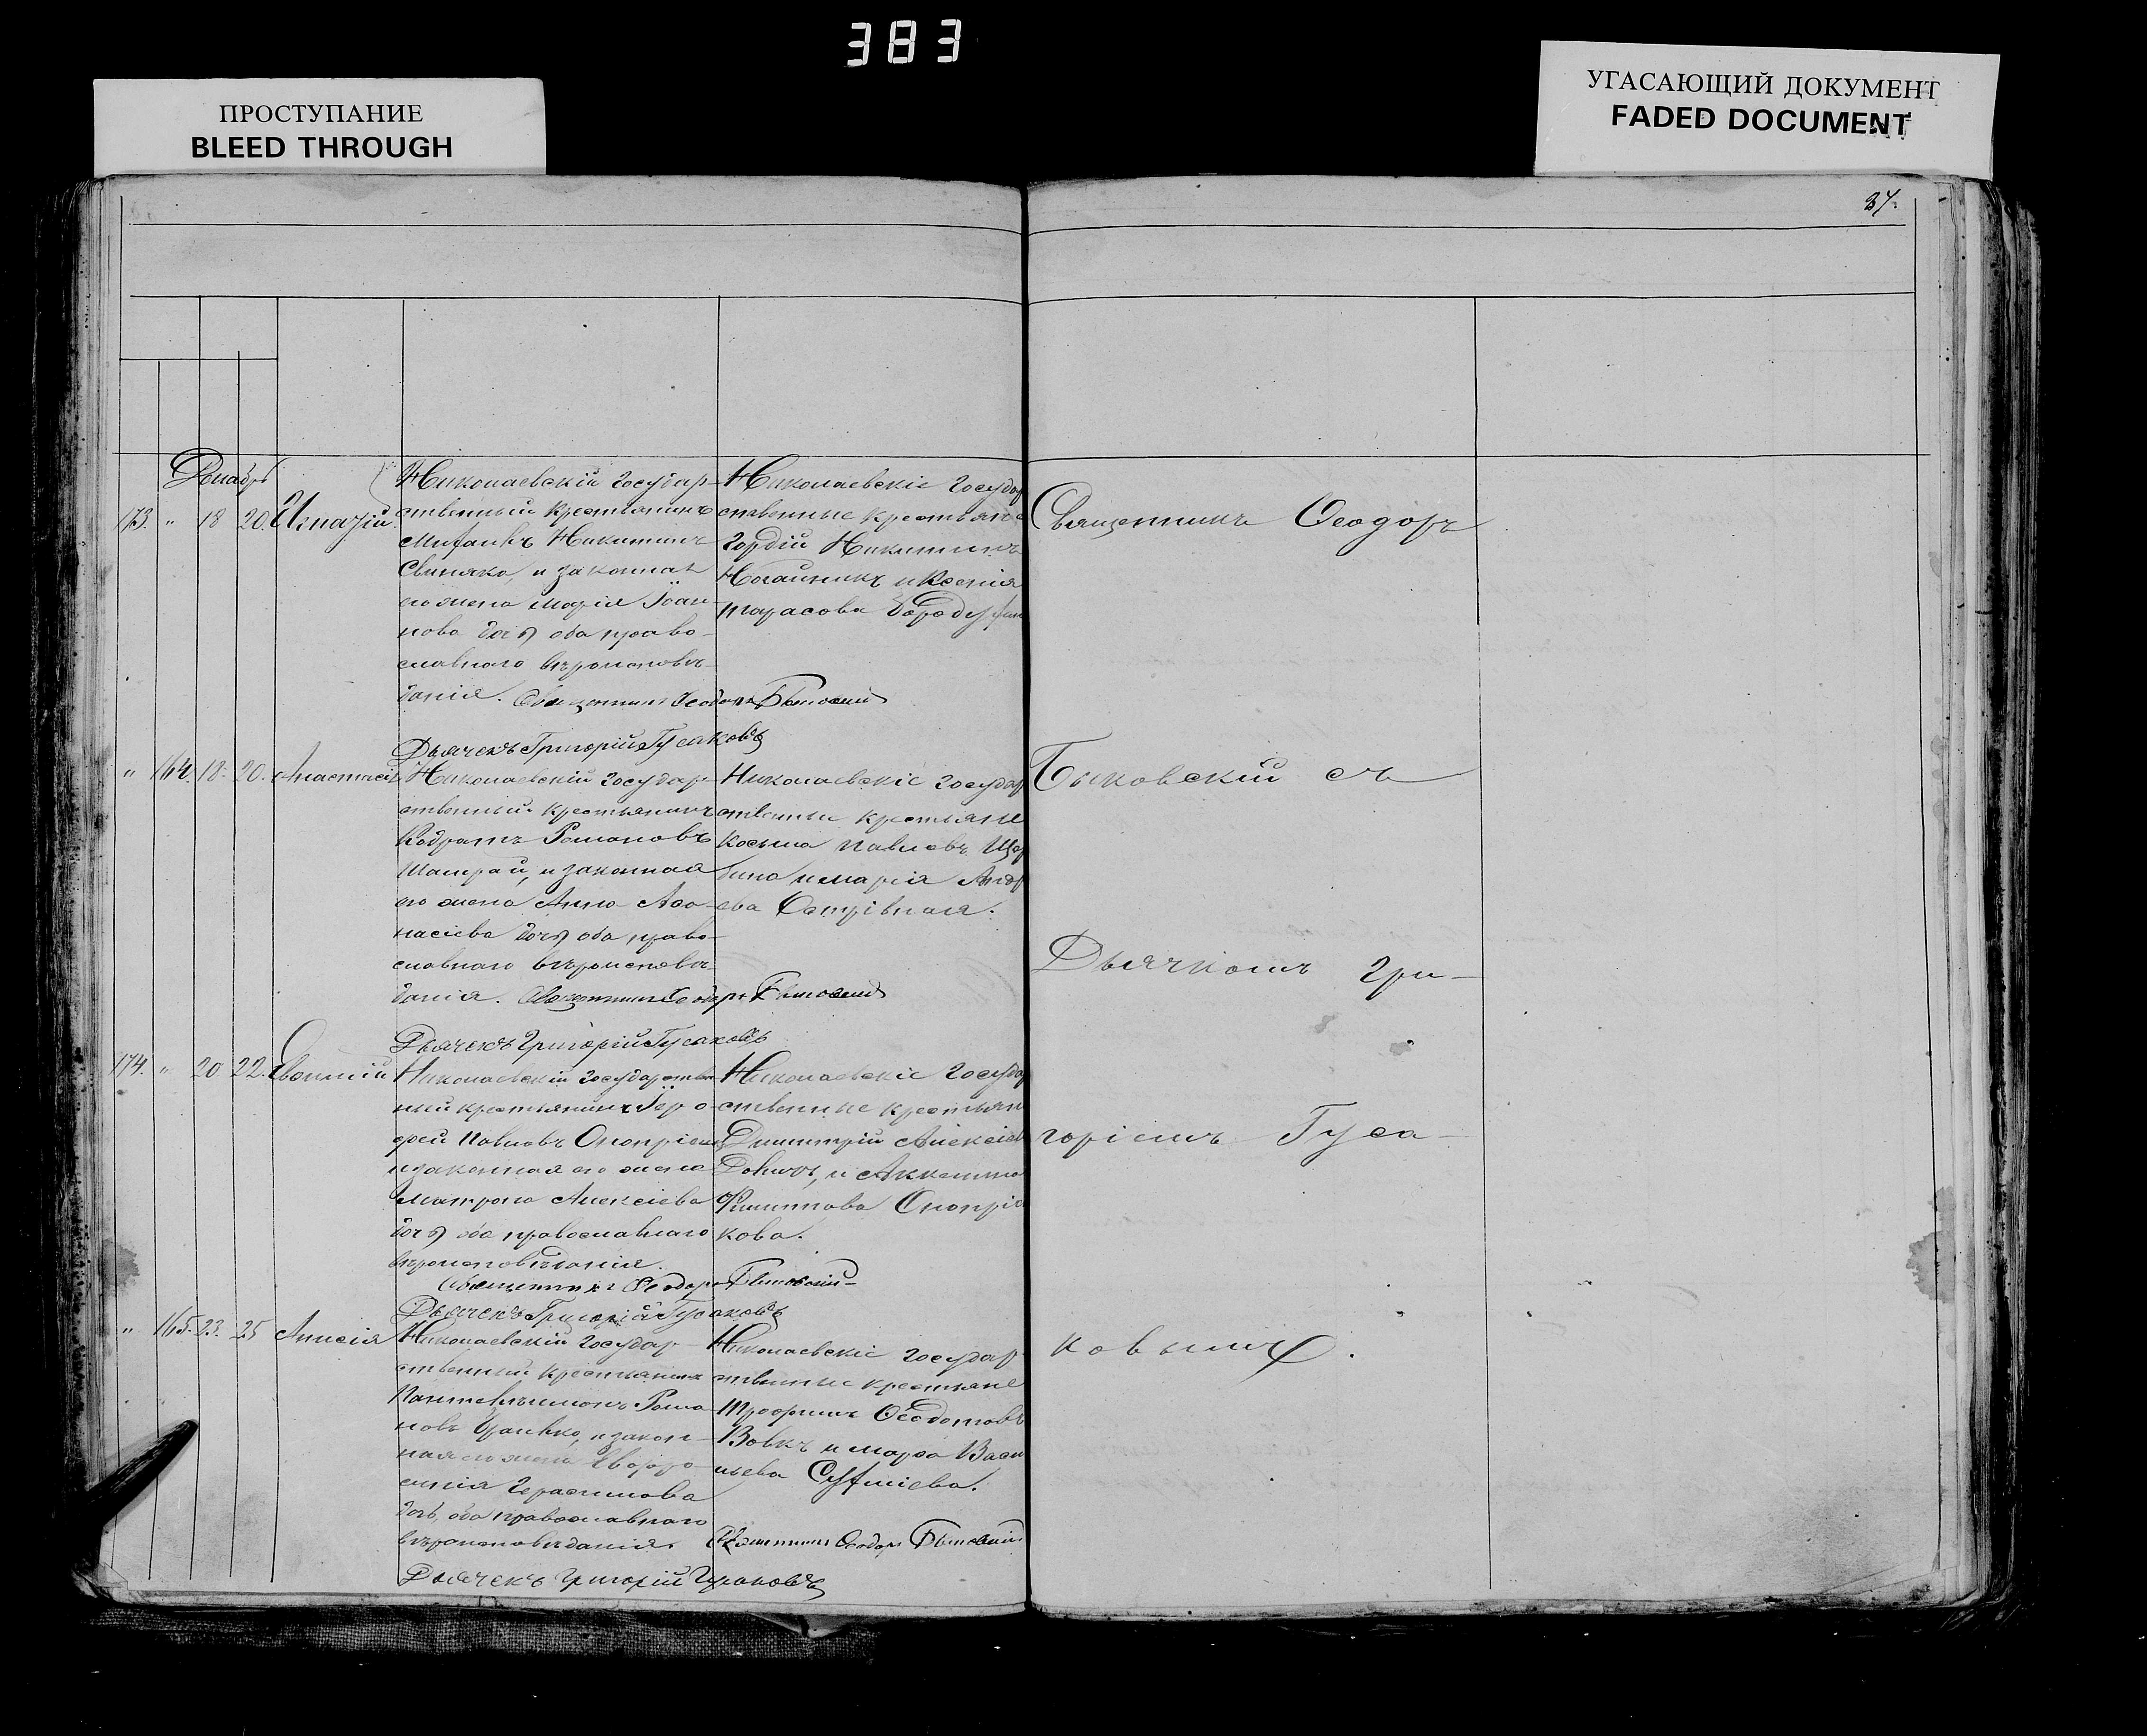 383
ПРОСТУПАНИЕ
BLEED THROUGH
УГАСАЮЩИЙ ДОКУМЕНТ
FADED DOCUMENT
37.
Декабрь
173. " 18 20. Игнатій
Николаевскій государ-
ственный крестьянинъ
Михаилъ Никитинъ
Свиняко, и законная
его жена Марія Іоан-
нова дочь оба право-
славнаго вѣроисповѣ-
данія. Священникъ Ѳеодоръ Быковскій
Дьячекъ Григорій Гусаковъ
Николаевскіе государ
ственные крестьяне
Гордій Никитинъ
Ногайникъ и Ксенія
Тарасова
" 164. 18. 20. Анастасія
Николаевскій государ-
ственный крестьянинъ
Кодратъ Романовъ
Шамрай, и законная
его жена Анна Аѳа-
насіева дочь оба право-
славнаго вѣроисповѣ-
данія. Священникъ Ѳеодоръ Быковскій
Дьячекъ Григорій Гусаковъ
Николаевскіе государ
ственные крестьяне
Косьма Павловъ Щер
бина и Марія Андр
ева Островная.
174. " 20 22. Евѳимій
Николаевскій государствен
ный крестьянинъ Іеро-
ѳей Павловъ
и законная его жена
Матрона Алексіева
дочь оба православнаго
вѣроисповѣданія.
Священникъ Ѳеодоръ Быковскій
Дьячекъ Григорій Гусаковъ
Николаевскіе государ
ственные крестьян
Димитрій Алексіев
и
Филиппова Оноприе
кова.
" 165. 23. 25 Анисія
Николаевскій государ-
ственный крестьянинъ
Пантелеимонъ Рома-
новъ и закон-
ная его жена Евфро-
синія Герасимова
дочь, оба православнаго
вѣроисповѣданія.
Священникъ Ѳеодоръ Быковскій
Дьячекъ Григорій Гусаковъ
Николаевскіе государ-
ственные крестьяне
Трофимъ Ѳеодотовъ
Вовкъ и Марѳа Васи
льева
Священникъ Ѳеодоръ
Быковскій съ
Дьячкомъ Гри-
горіемъ Гуса-
ковымъ.